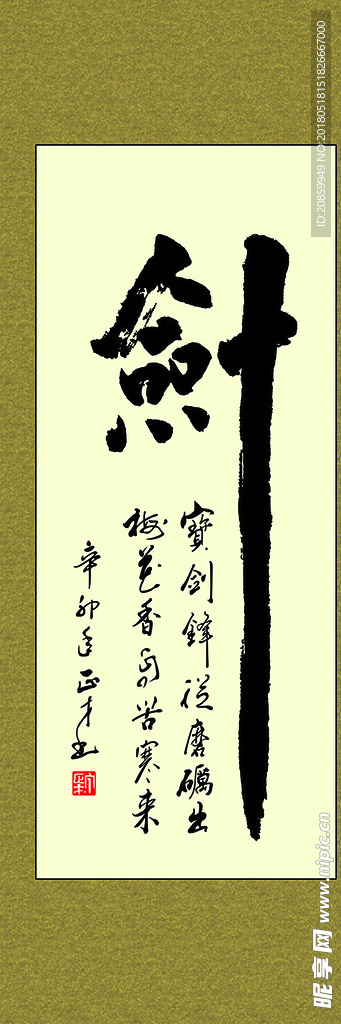 劍
寶劍鋒從磨礪出
梅花香自苦寒来
辛卯年正才书
ID:20859949 NO:20180518151826667000
昵享网 www.nipic.cn